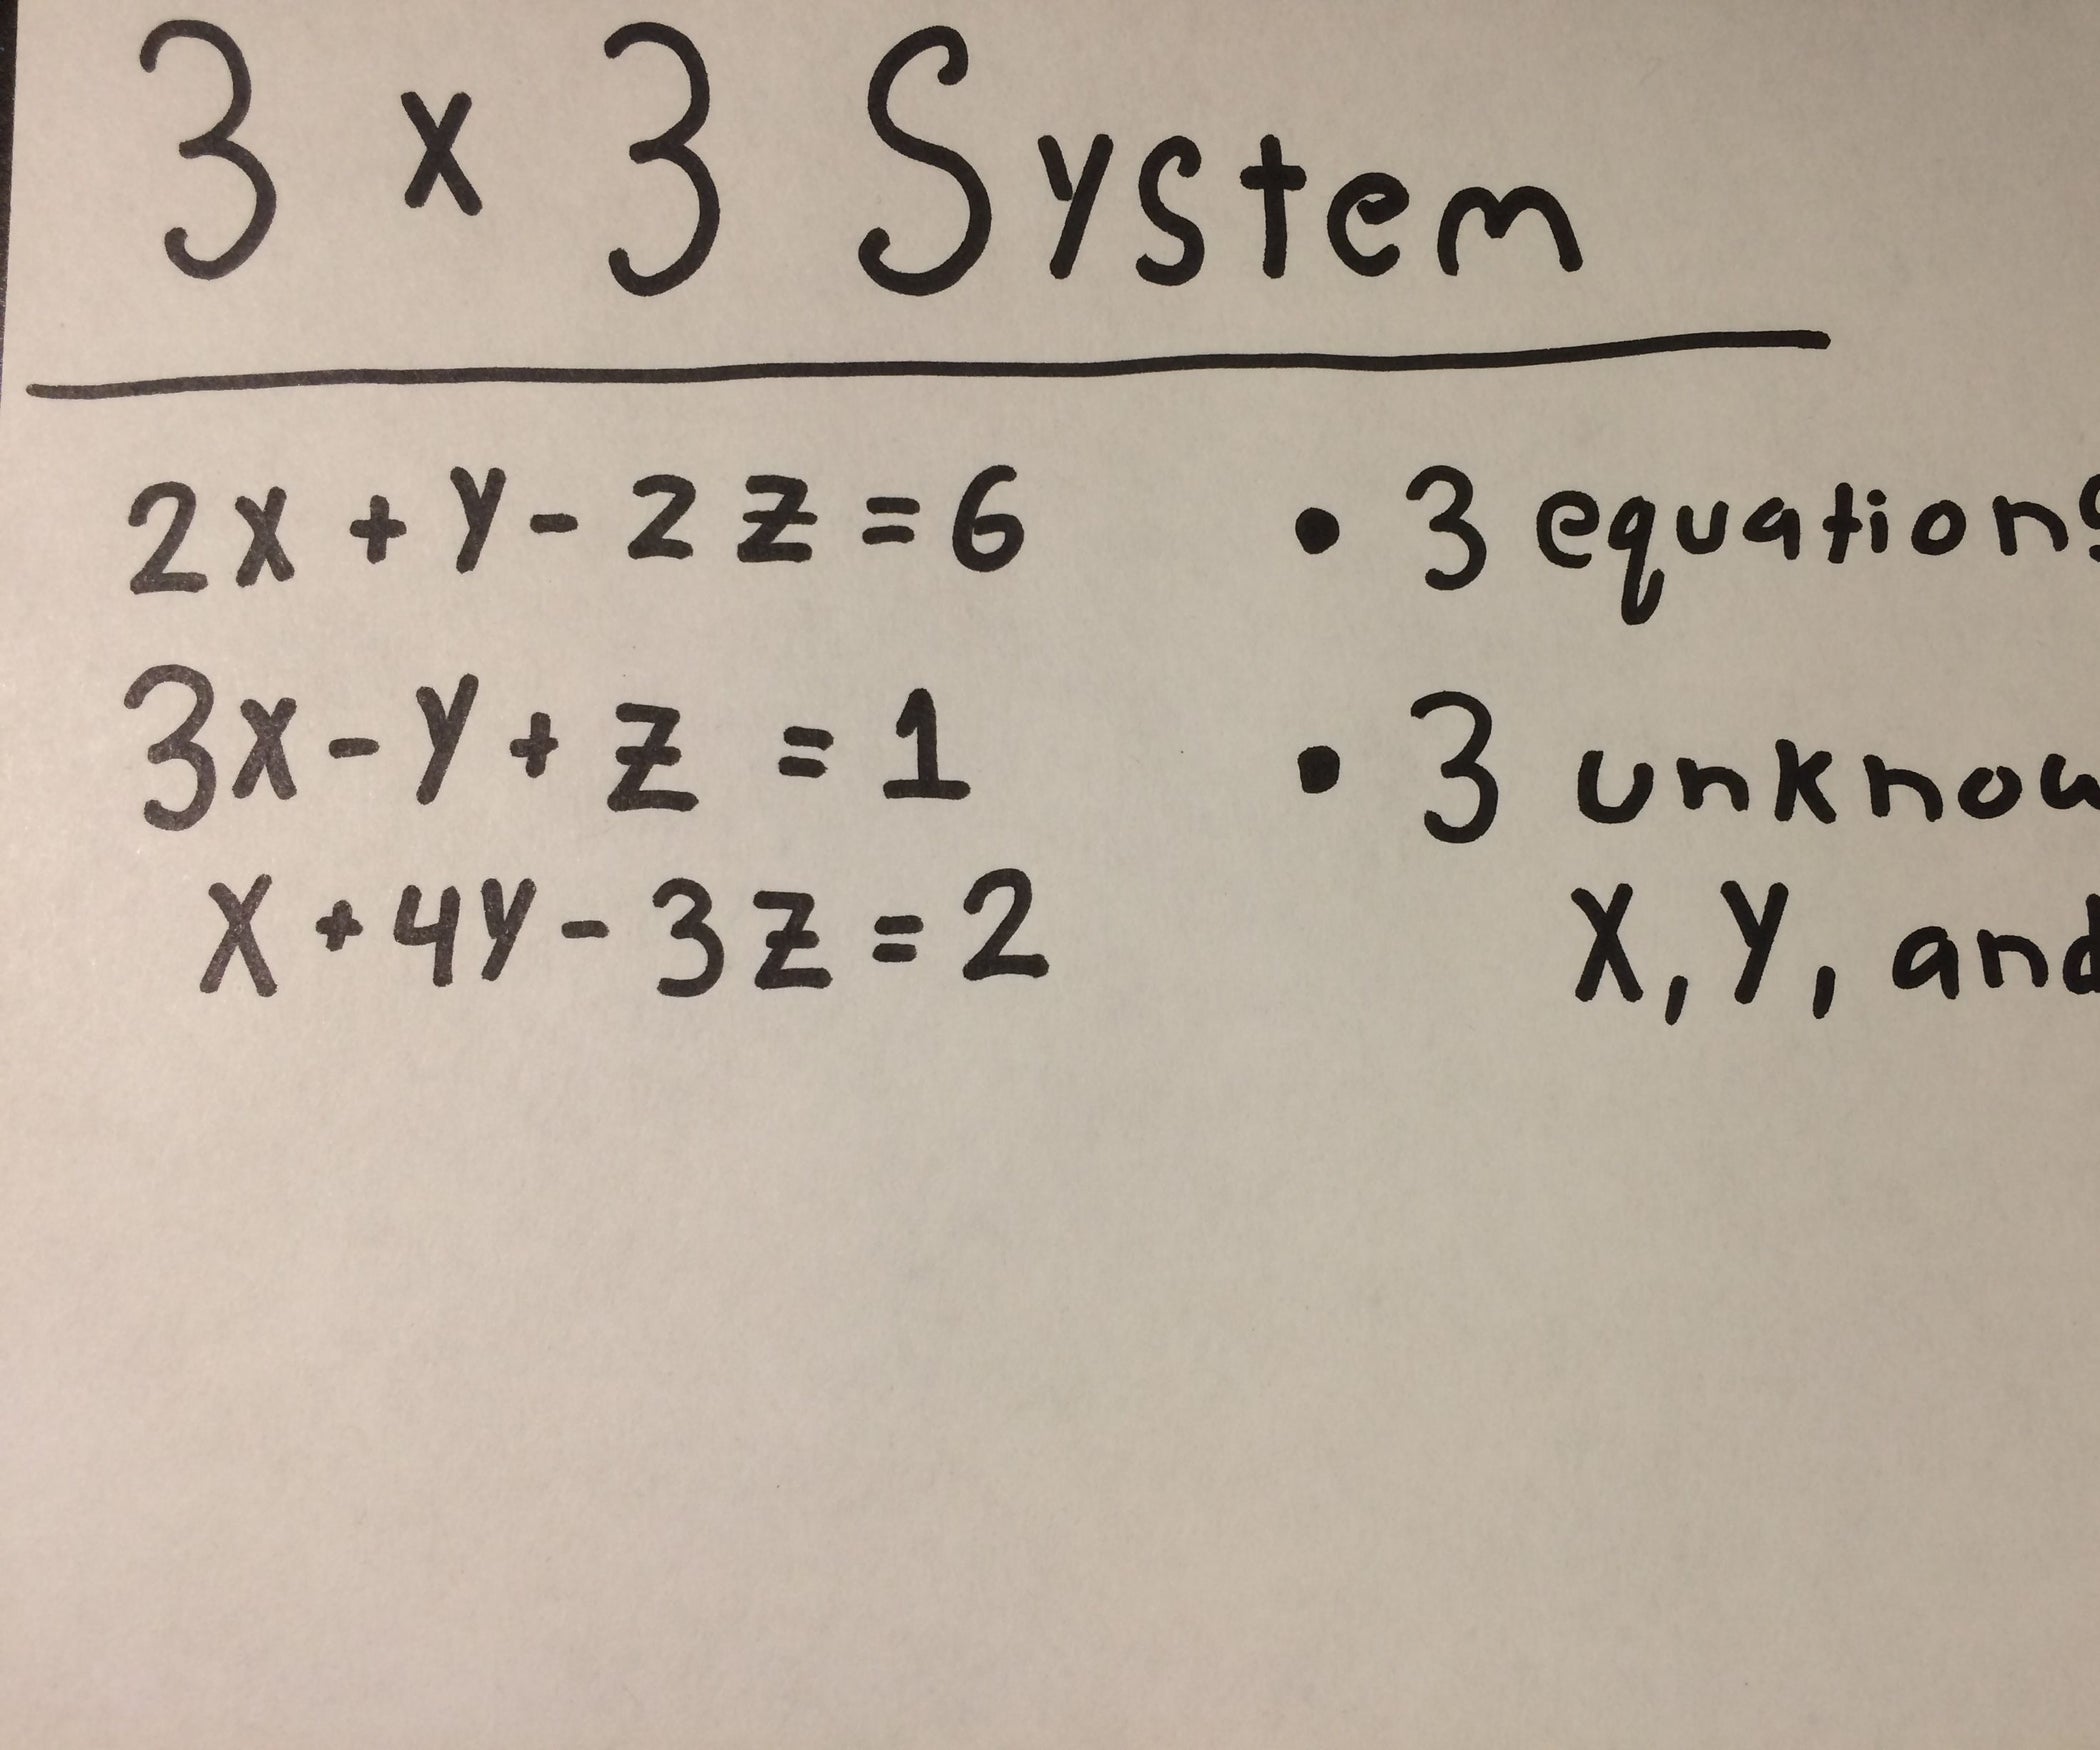 3 x 3 System
2x + y - 2z = 6
3x - y + z = 1
x + 4y - 3z = 2
• 3 equations
• 3 unknow
x, y, and